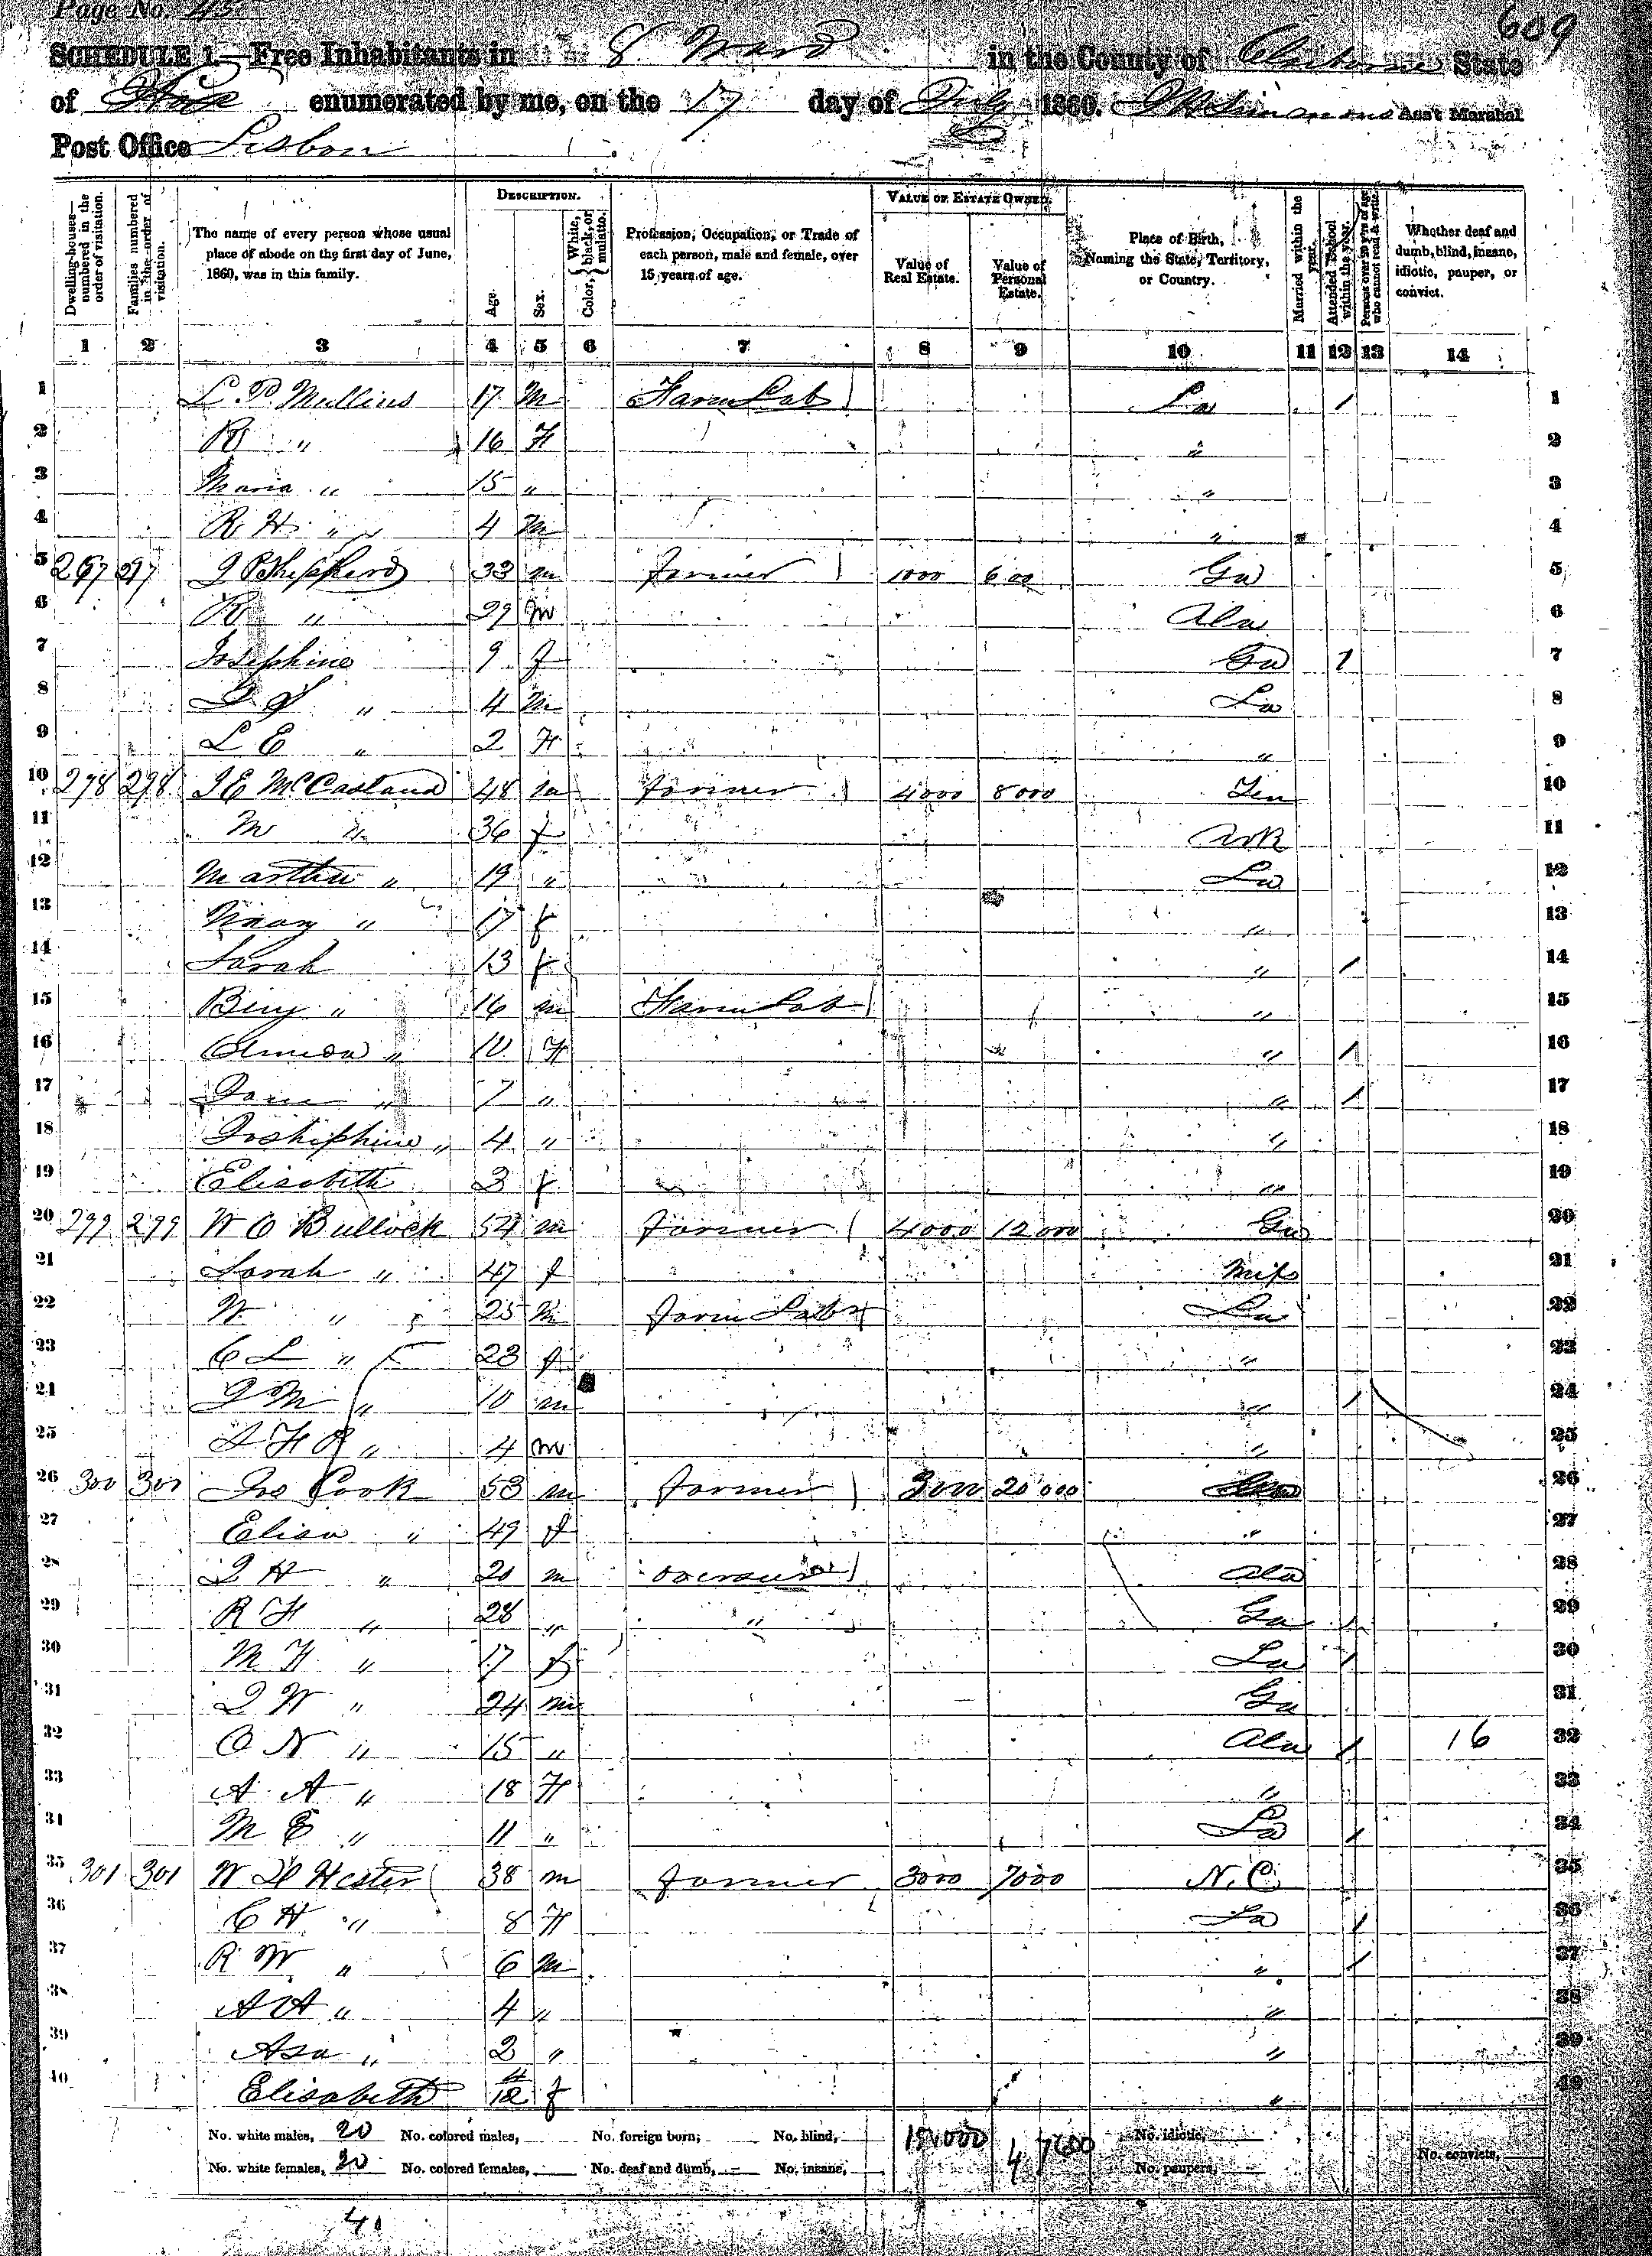 Page No. 45
609
SCHEDULE 1.—Free Inhabitants in 8 Ward in the County of Claiborne State
of enumerated by me, on the 17 day of July 1860. Ass't Marshal.
Post Office Lisbon
Dwelling-houses—numbered in the order of visitation.
Families numbered in the order of visitation.
The name of every person whose usual place of abode on the first day of June, 1860, was in this family.
DESCRIPTION.
Age.
Sex.
Color, { White, black, or mulatto.
Profession, Occupation, or Trade of each person, male and female, over 15 years of age.
VALUE OF ESTATE OWNED.
Value of Real Estate.
Value of Personal Estate.
Place of Birth, Naming the State, Territory, or Country.
Married within the year.
Attended School within the year.
Persons over 20 y'rs of age who cannot read & write.
Whether deaf and dumb, blind, insane, idiotic, pauper, or convict.
1 2 3 4 5 6 7 8 9 10 11 12 13 14
1 L. P. Mullins 17 M Farm Lab La / 1
2 R " 16 F " 2
3 Maria " 15 " " 3
4 R H " 4 M " 4
5 297 297 J P Shepherd 33 m farmer 1000 600 Ga 5
6 R " 29 m Ala 6
7 Josephine 9 f Ga 1 7
8 " 4 M La 8
9 L E " 2 F " 9
10 298 298 J E McCasland 48 m farmer 4000 8000 Ten 10
11 M " 36 f Ark 11
12 Martha " 19 " La 12
13 Mary " 17 f " 13
14 Sarah 13 f " / 14
15 Benj " 16 m Farm Lab " 15
16 " 10 F " / 16
17 Jane " 7 " " / 17
18 Joshiphine " 4 " " 18
19 Elisabith 3 f " 19
20 299 299 W C Bullock 54 m farmer 4000 12000 Ga 20
21 Sarah " 47 f Miss 21
22 W " 25 M farm Lab La 22
23 C L " 23 f " 23
24 J M " 10 m " / 24
25 J F R " 4 m " 25
26 300 300 Jos Cook 53 m farmer 3000 20000 26
27 Elisa " 49 f " 27
28 J H " 20 m overseer Ala 28
29 R F " 28 " " Ga / 29
30 M F " 17 f La / 30
31 J W " 24 m Ga 31
32 O N " 15 " Ala / 16 32
33 A A " 18 F " 33
34 M E " 11 " La / 34
35 301 301 W D Hester 38 m farmer 3000 7000 N. C. 35
36 C H " 8 F La / 36
37 R W " 6 M " / 37
38 A A " 4 " " 38
39 Asa " 2 " " 39
40 Elisabeth 4/12 f " 40
No. white males, 20 No. colored males, No. foreign born, No. blind, 15,000 47600 No. idiotic,
No. white females, 20 No. colored females, No. deaf and dumb, No. insane, No. paupers, No. convicts,
40